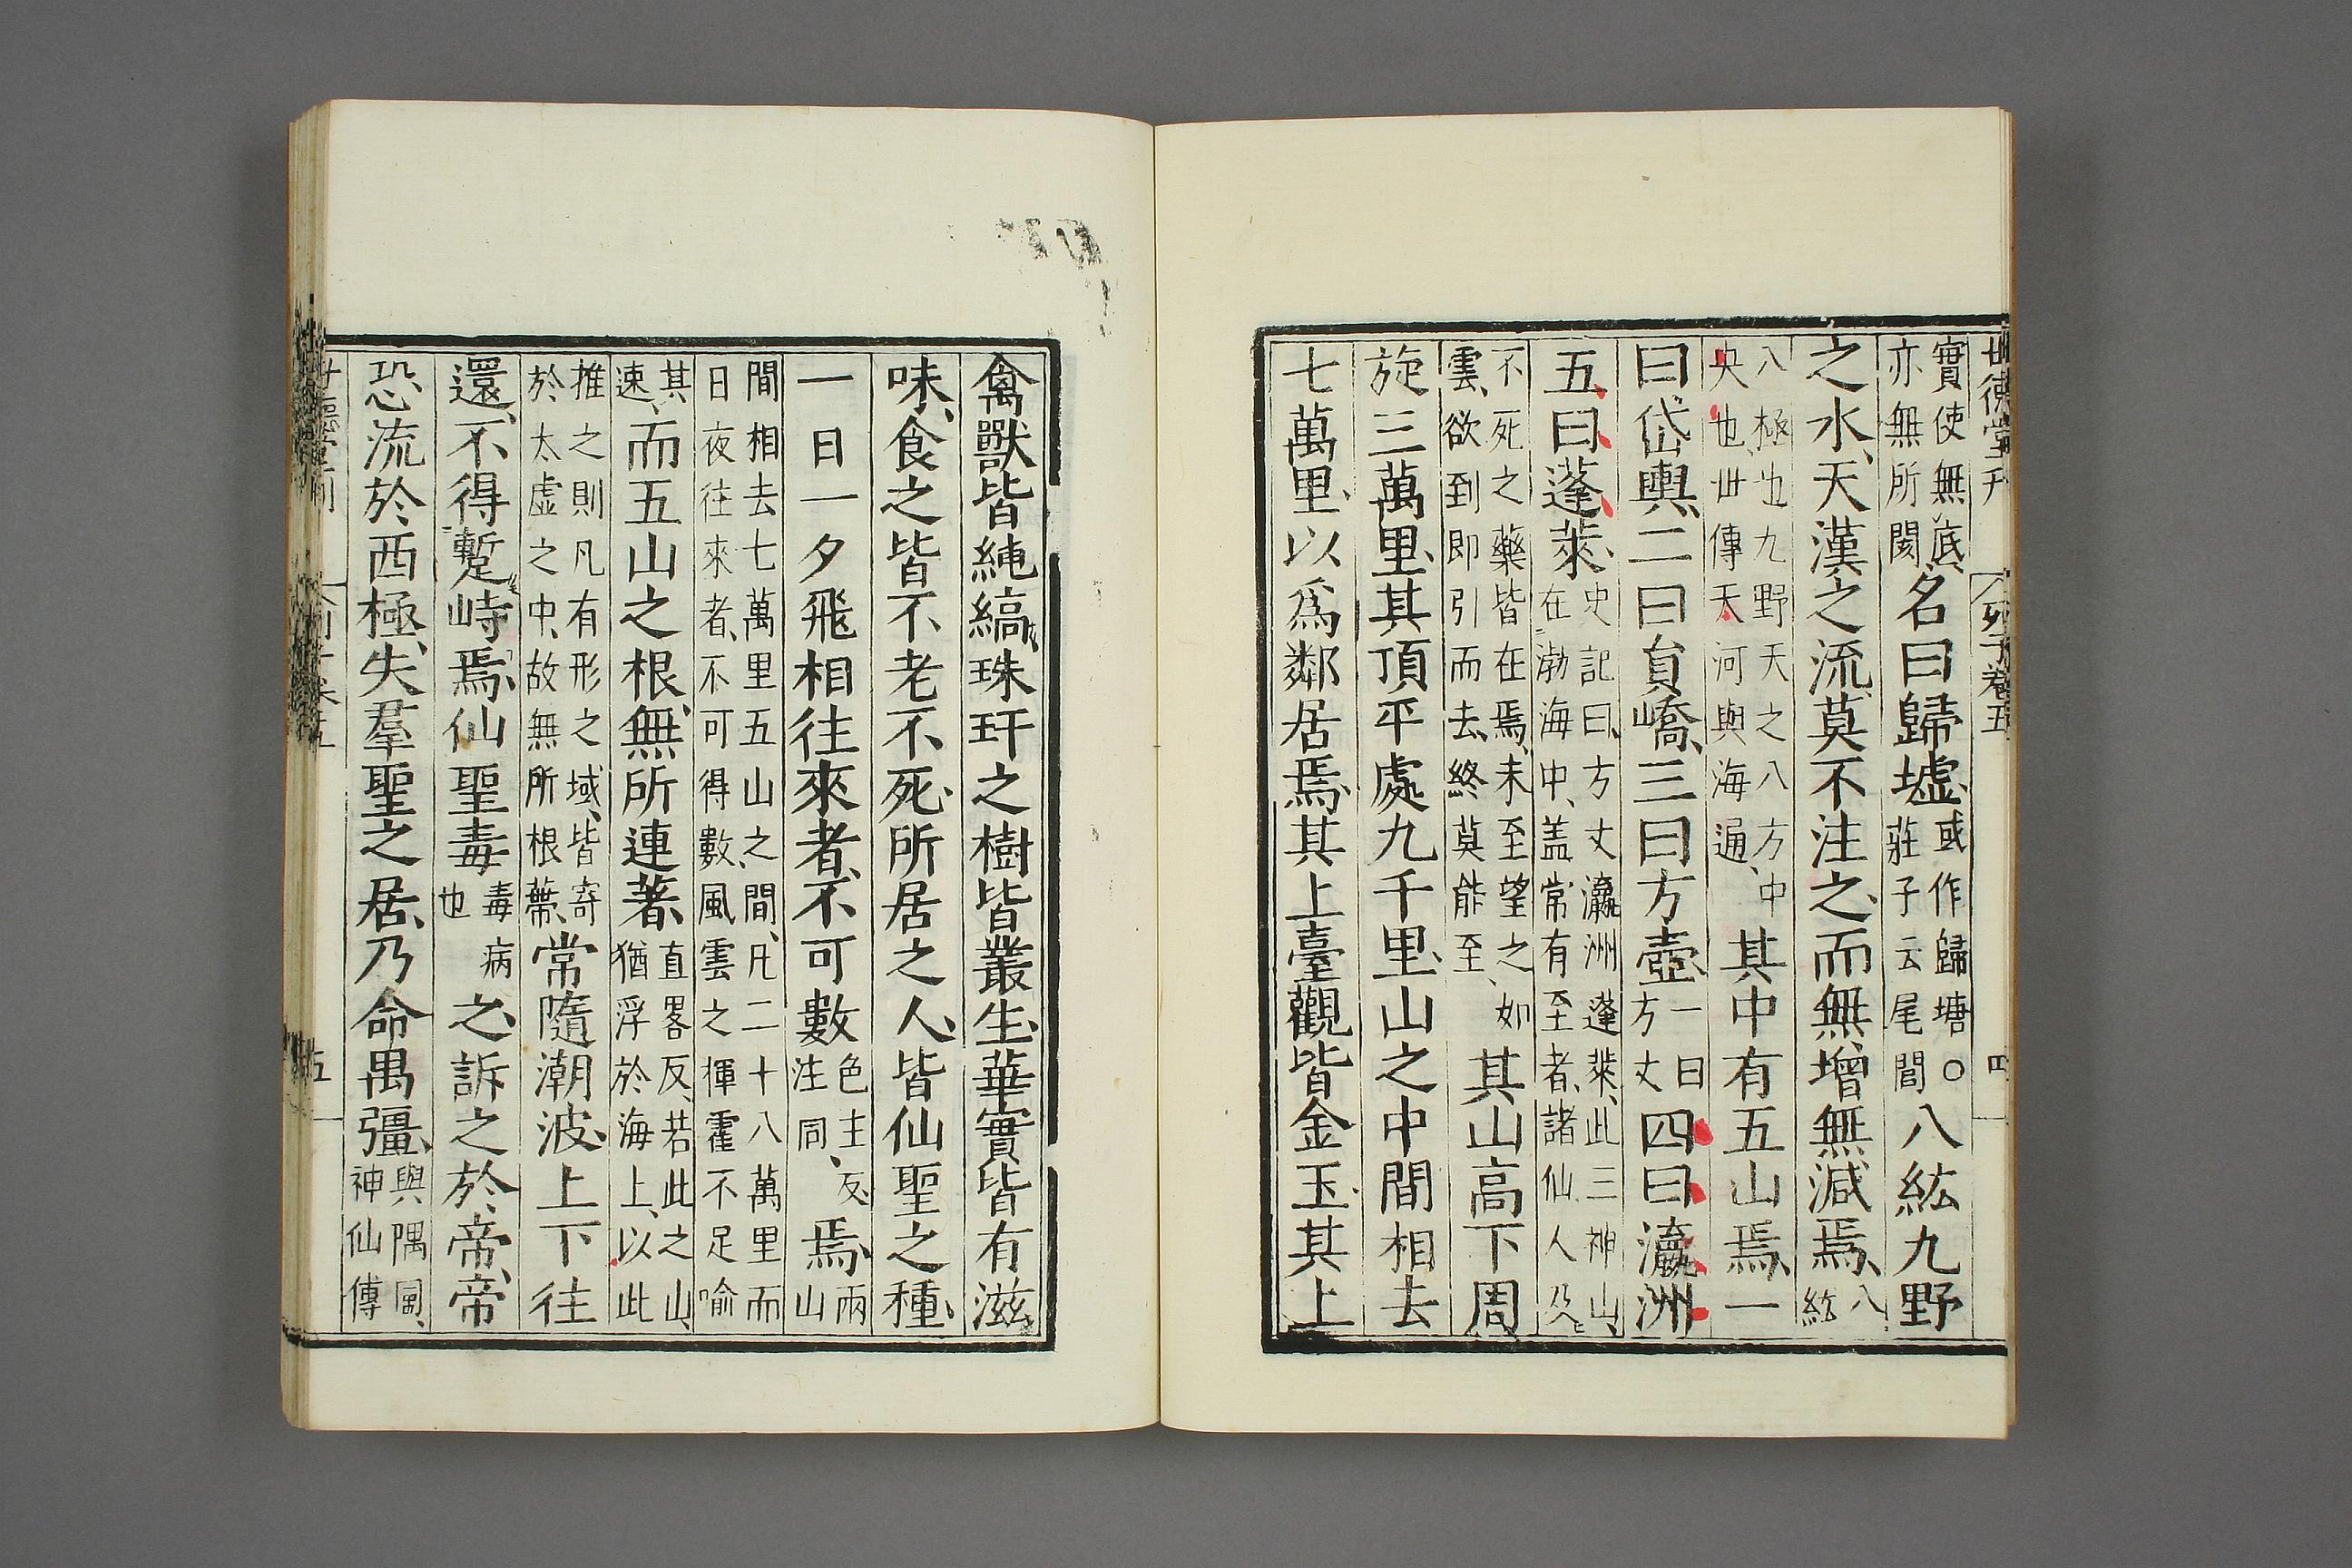 世德堂刊 列子卷五 四
實使無底亦無所閡名曰歸墟或作歸塘○莊子云尾閭八紘九野
之水天漢之流莫不注之而無增無減焉八紘
八極也九野天之八方中央也世傳天河與海通其中有五山焉一
曰岱輿二曰負嶠三曰方壺一曰方丈四曰瀛洲
五曰蓬萊史記曰方丈瀛洲蓬萊此三神山在渤海中盖常有至者諸仙人及
不死之藥皆在焉未至望之如雲欲到即引而去終莫能至其山高下周
旋三萬里其頂平處九千里山之中間相去
七萬里以爲鄰居焉其上臺觀皆金玉其上
禽獸皆純縞珠玕之樹皆叢生華實皆有滋
味食之皆不老不死所居之人皆仙聖之種
一日一夕飛相往來者不可數色主反注同焉兩山
間相去七萬里五山之間凡二十八萬里而日夜往來者不可得數風雲之揮霍不足喻
其速而五山之根無所連著直畧反若此之山猶浮於海上以此
推之則凡有形之域皆寄於太虛之中故無所根蔕常隨潮波上下往
還不得蹔峙焉仙聖毒毒病也之訴之於帝帝
恐流於西極失羣聖之居乃命禺彊與隅同神仙傳